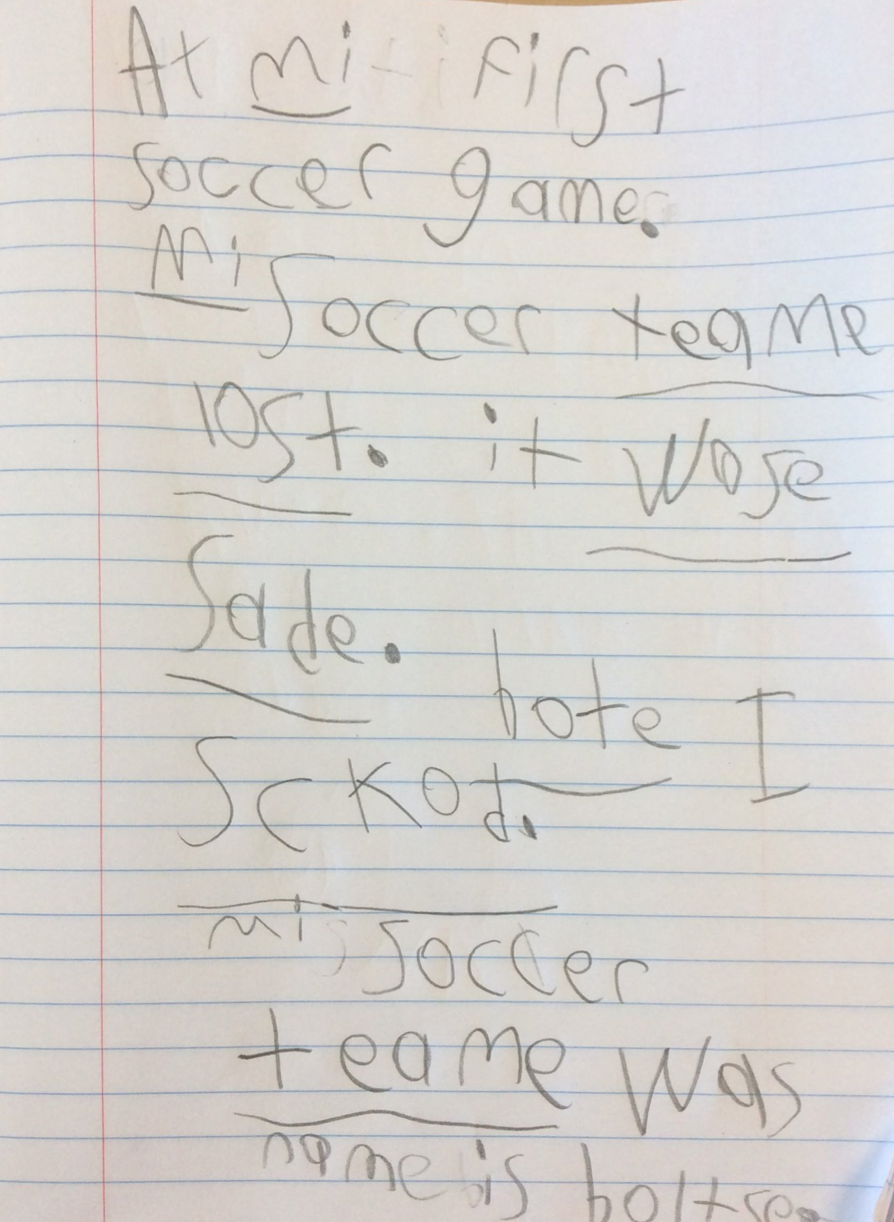 At mi first
soccer game.
Mi soccer teame
lost. it wose
Sade. bote I
Sckod.
mi soccer
teame was
name is boltse.